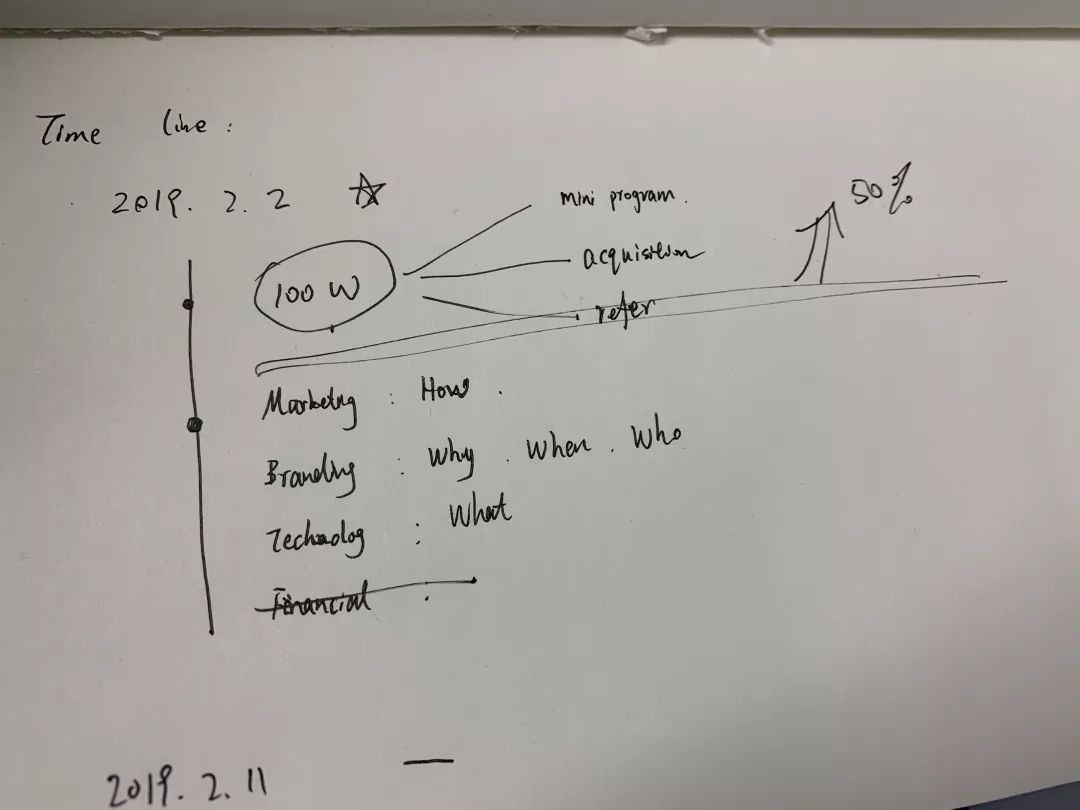 Time line :
2019. 2. 2 ☆
mini program.
50%
100 W
acquisition
refer
Marketing : How .
Branding : Why . When . Who
Technolog : What
Financial :
2019. 2. 11 —